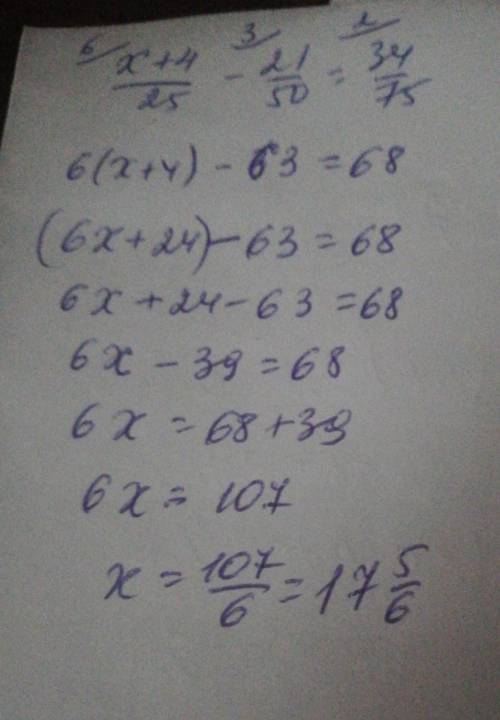 6/ x+4/25 - 3/ 21/50 = 2/ 34/75
6(x+4) - 63 = 68
(6x+24) - 63 = 68
6x + 24 - 63 = 68
6x - 39 = 68
6x = 68 + 39
6x = 107
x = 107/6 = 17 5/6